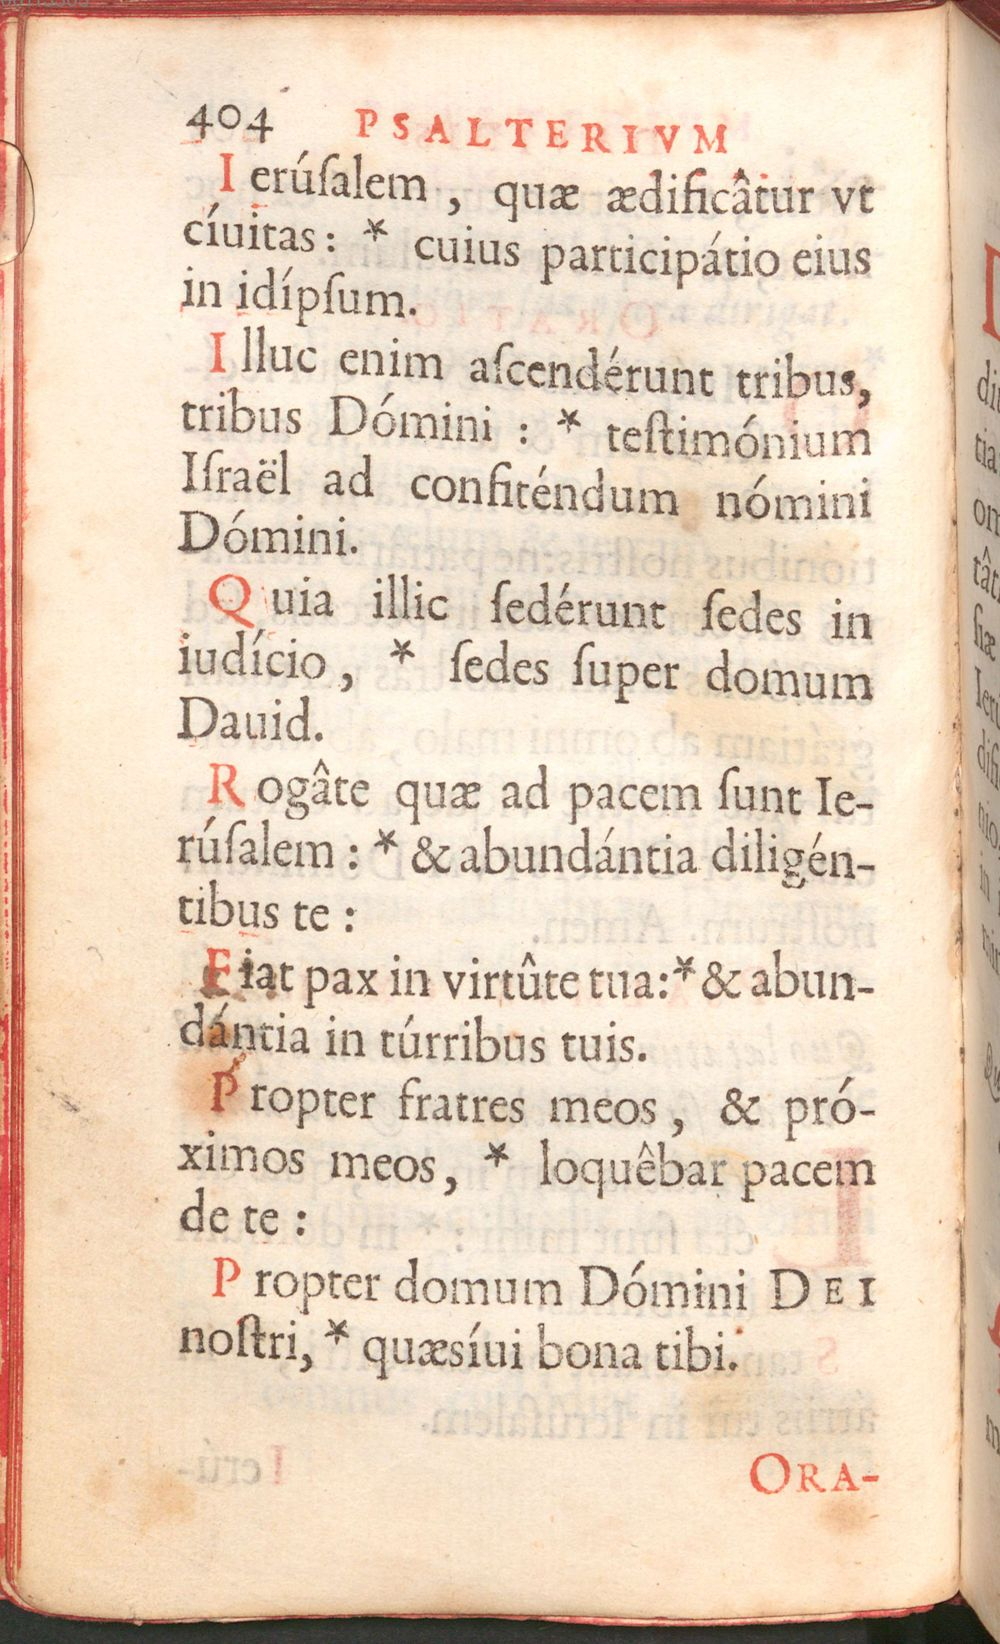 404 PSALTERIVM
Ierúſalem, quæ ædificâtur vt
cíuitas: * cuius participátio eius
in idípſum.
Illuc enim aſcendérunt tribus,
tribus Dómini : * teſtimónium
Iſraël ad confiténdum nómini
Dómini.
Quia illic ſedérunt ſedes in
iudício, * ſedes ſuper domum
Dauid.
Rogâte quæ ad pacem ſunt Ie-
rúſalem : * & abundántia diligén-
tibus te :
Fiat pax in virtûte tua: * & abun-
dántia in túrribus tuis.
Propter fratres meos, & pró-
ximos meos, * loquêbar pacem
de te :
Propter domum Dómini DEI
noſtri, * quæsíui bona tibi.
ORA-